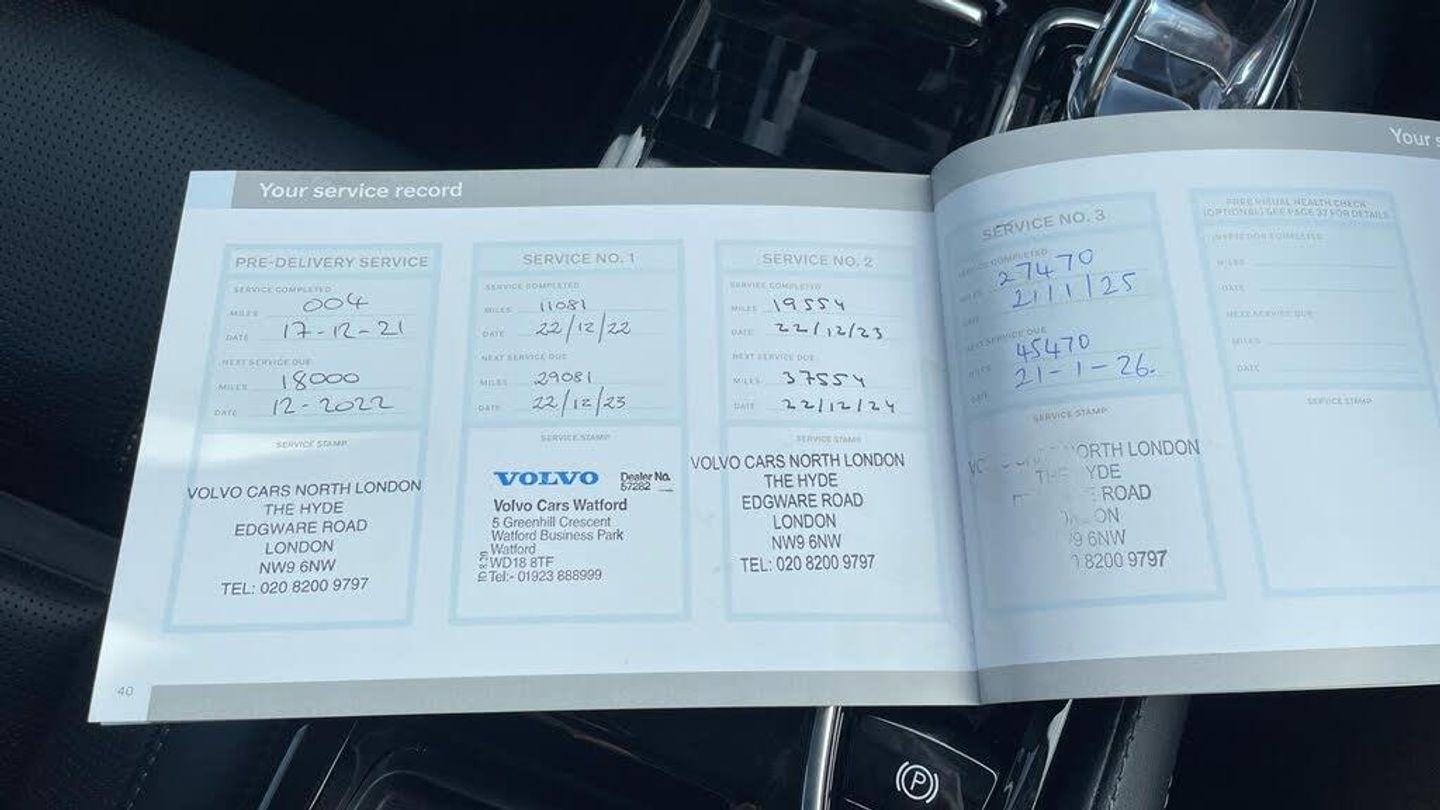 Your service record
Your s
PRE-DELIVERY SERVICE
SERVICE COMPLETED
MILES 004
DATE 17-12-21
NEXT SERVICE DUE
MILES 18000
DATE 12-2022
SERVICE STAMP
VOLVO CARS NORTH LONDON
THE HYDE
EDGWARE ROAD
LONDON
NW9 6NW
TEL: 020 8200 9797
SERVICE NO. 1
SERVICE COMPLETED
MILES 11081
DATE 22/12/22
NEXT SERVICE DUE
MILES 29081
DATE 22/12/23
SERVICE STAMP
VOLVO Dealer No.
57282
Volvo Cars Watford
5 Greenhill Crescent
Watford Business Park
Watford
WD18 8TF
Tel:- 01923 888999
SERVICE NO. 2
SERVICE COMPLETED
MILES 19554
DATE 22/12/23
NEXT SERVICE DUE
MILES 37554
DATE 22/12/24
SERVICE STAMP
VOLVO CARS NORTH LONDON
THE HYDE
EDGWARE ROAD
LONDON
NW9 6NW
TEL: 020 8200 9797
SERVICE NO. 3
SERVICE COMPLETED
27470
MILES 21/1/25
DATE
NEXT SERVICE DUE
45470
MILES 21-1-26.
DATE
SERVICE STAMP
ORTH LONDON
THE YDE
ROAD
ON
9 6NW
8200 9797
FREE VISUAL HEALTH CHECK
(OPTIONAL) SEE PAGE 37 FOR DETAILS
INSPECTION COMPLETED
MILES
DATE
NEXT SERVICE DUE
MILES
DATE
SERVICE STAMP
40
P